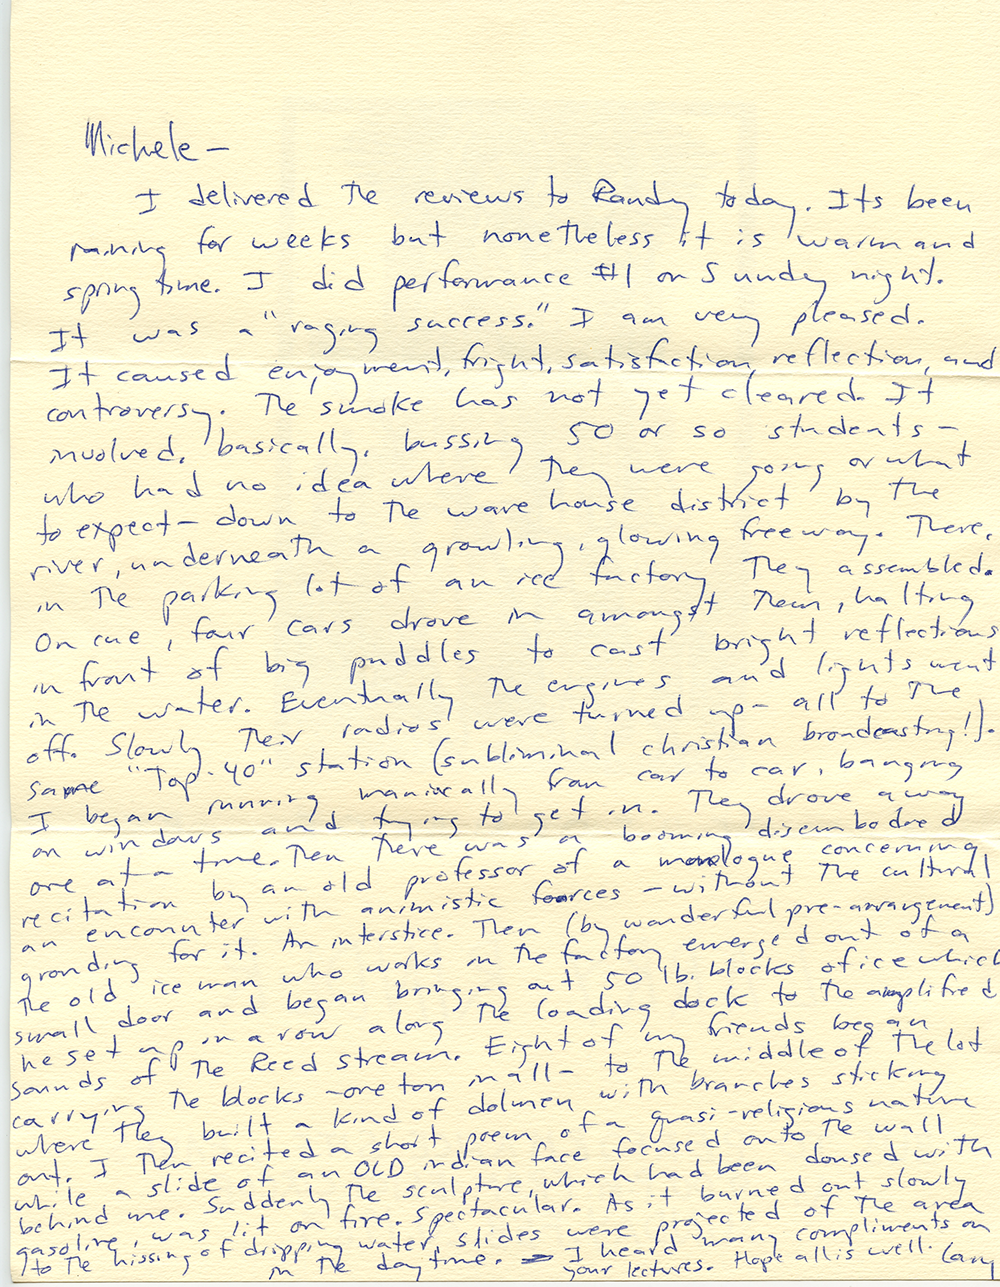 Michele —
I delivered the reviews to Randy today. Its been
raining for weeks but nonetheless it is warm and
spring time. I did performance #1 on Sunday night.
It was a "raging success." I am very pleased.
It caused enjoyment, fright, satisfaction, reflection, and
controversy. The smoke has not yet cleared. It
involved, basically, bussing 50 or so students —
who had no idea where they were going or what
to expect — down to the warehouse district by the
river, underneath a growling, glowing freeway. There,
in the parking lot of an ice factory they assembled.
On cue, four cars drove in amongst them, halting
in front of big puddles to cast bright reflections
in the water. Eventually the engines and lights went
off. Slowly their radios were turned up — all to the
same "Top-40" station (subliminal christian broadcasting!).
I began running maniacally from car to car, banging
on windows and trying to get in. They drove away
one at a time. Then there was a booming disembodied
recitation by an old professor of a monologue concerning
an encounter with animistic forces — without the cultural
gronding for it. An interstice. Then (by wonderful pre-arrangement)
the old ice man who works in the factory emerged out of a
small door and began bringing out 50 lb. blocks of ice which
he set up in a row along the loading dock to the amplified
sounds of the Reed stream. Eight of my friends began
carrying the blocks — one ton in all — to the middle of the lot
where they built a kind of dolmen with branches sticking
out. I then recited a short poem of a quasi-religious nature
while a slide of an OLD indian face focused onto the wall
behind me. Suddenly the sculpture, which had been doused with
gasoline, was lit on fire. Spectacular. As it burned out slowly
to the hissing of dripping water, slides were projected of the area
in the daytime. — I heard many compliments on
your lectures. Hope all is well.